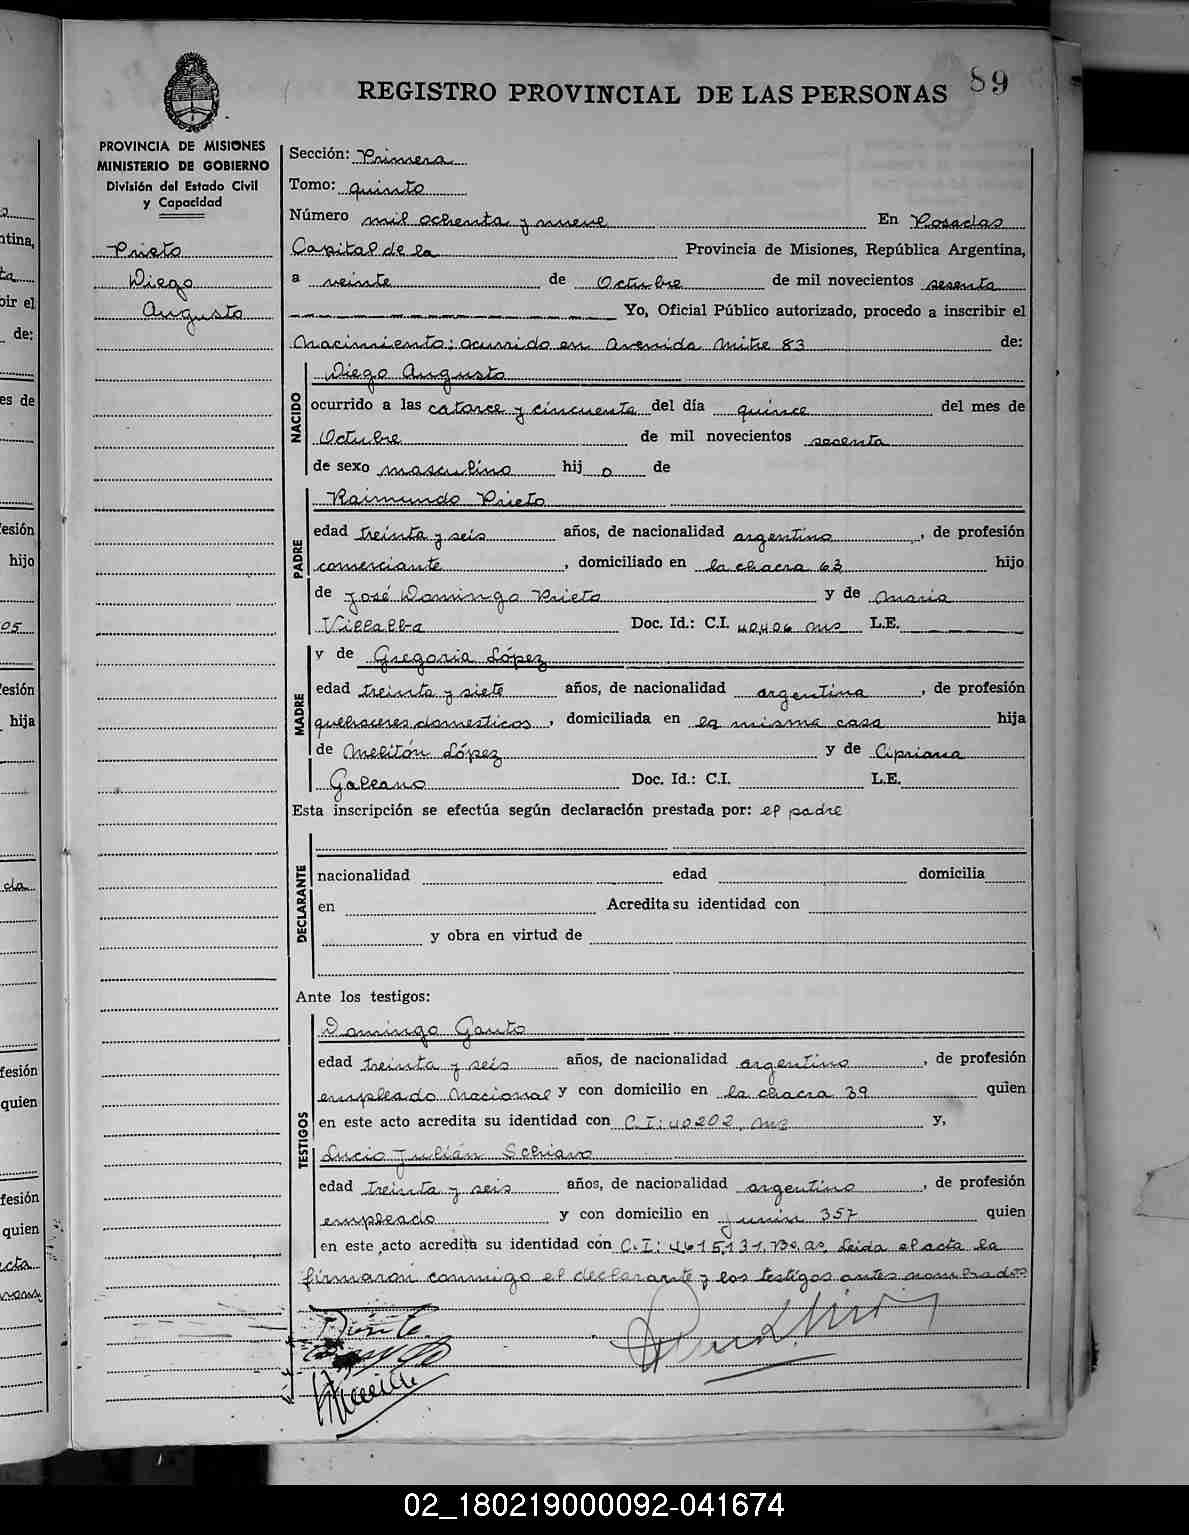 89
REGISTRO PROVINCIAL DE LAS PERSONAS
PROVINCIA DE MISIONES
MINISTERIO DE GOBIERNO
División del Estado Civil
y Capacidad
Prieto
Diego
Augusto
Sección: Primera
Tomo: quinto
Número mil ochenta y nueve En Posadas
Capital de la Provincia de Misiones, República Argentina,
a veinte de Octubre de mil novecientos sesenta
Yo, Oficial Público autorizado, procedo a inscribir el
Nacimiento: ocurrido en Avenida Mitre 83 de:
NACIDO
Diego Augusto
ocurrido a las catorce y cincuenta del día quince del mes de
Octubre de mil novecientos sesenta
de sexo masculino hij o de
PADRE
Raimundo Prieto
edad treinta y seis años, de nacionalidad argentino, de profesión
comerciante, domiciliado en la chacra 63 hijo
de José Domingo Prieto y de María
Villalba Doc. Id.: C.I. 40,406 Mns L.E.
MADRE
y de Gregoria López
edad treinta y siete años, de nacionalidad argentina, de profesión
quehaceres domesticos, domiciliada en la misma casa hija
de Melitón López y de Cipriana
Galeano Doc. Id.: C.I. L.E.
Esta inscripción se efectúa según declaración prestada por: el padre
DECLARANTE
nacionalidad edad domicilia
en Acredita su identidad con
y obra en virtud de
Ante los testigos:
TESTIGOS
Domingo Gauto
edad treinta y seis años, de nacionalidad argentino, de profesión
empleado Nacional y con domicilio en la chacra 39 quien
en este acto acredita su identidad con C.I: 40202, y,
Lucio Julián Schiavo
edad treinta y seis años, de nacionalidad argentino, de profesión
empleado y con domicilio en Junín 357 quien
en este acto acredita su identidad con C.I: 4615,131, Bs, as, Leida el acta la
firmaron conmigo el declarante y los testigos antes nombrados
02_180219000092-041674